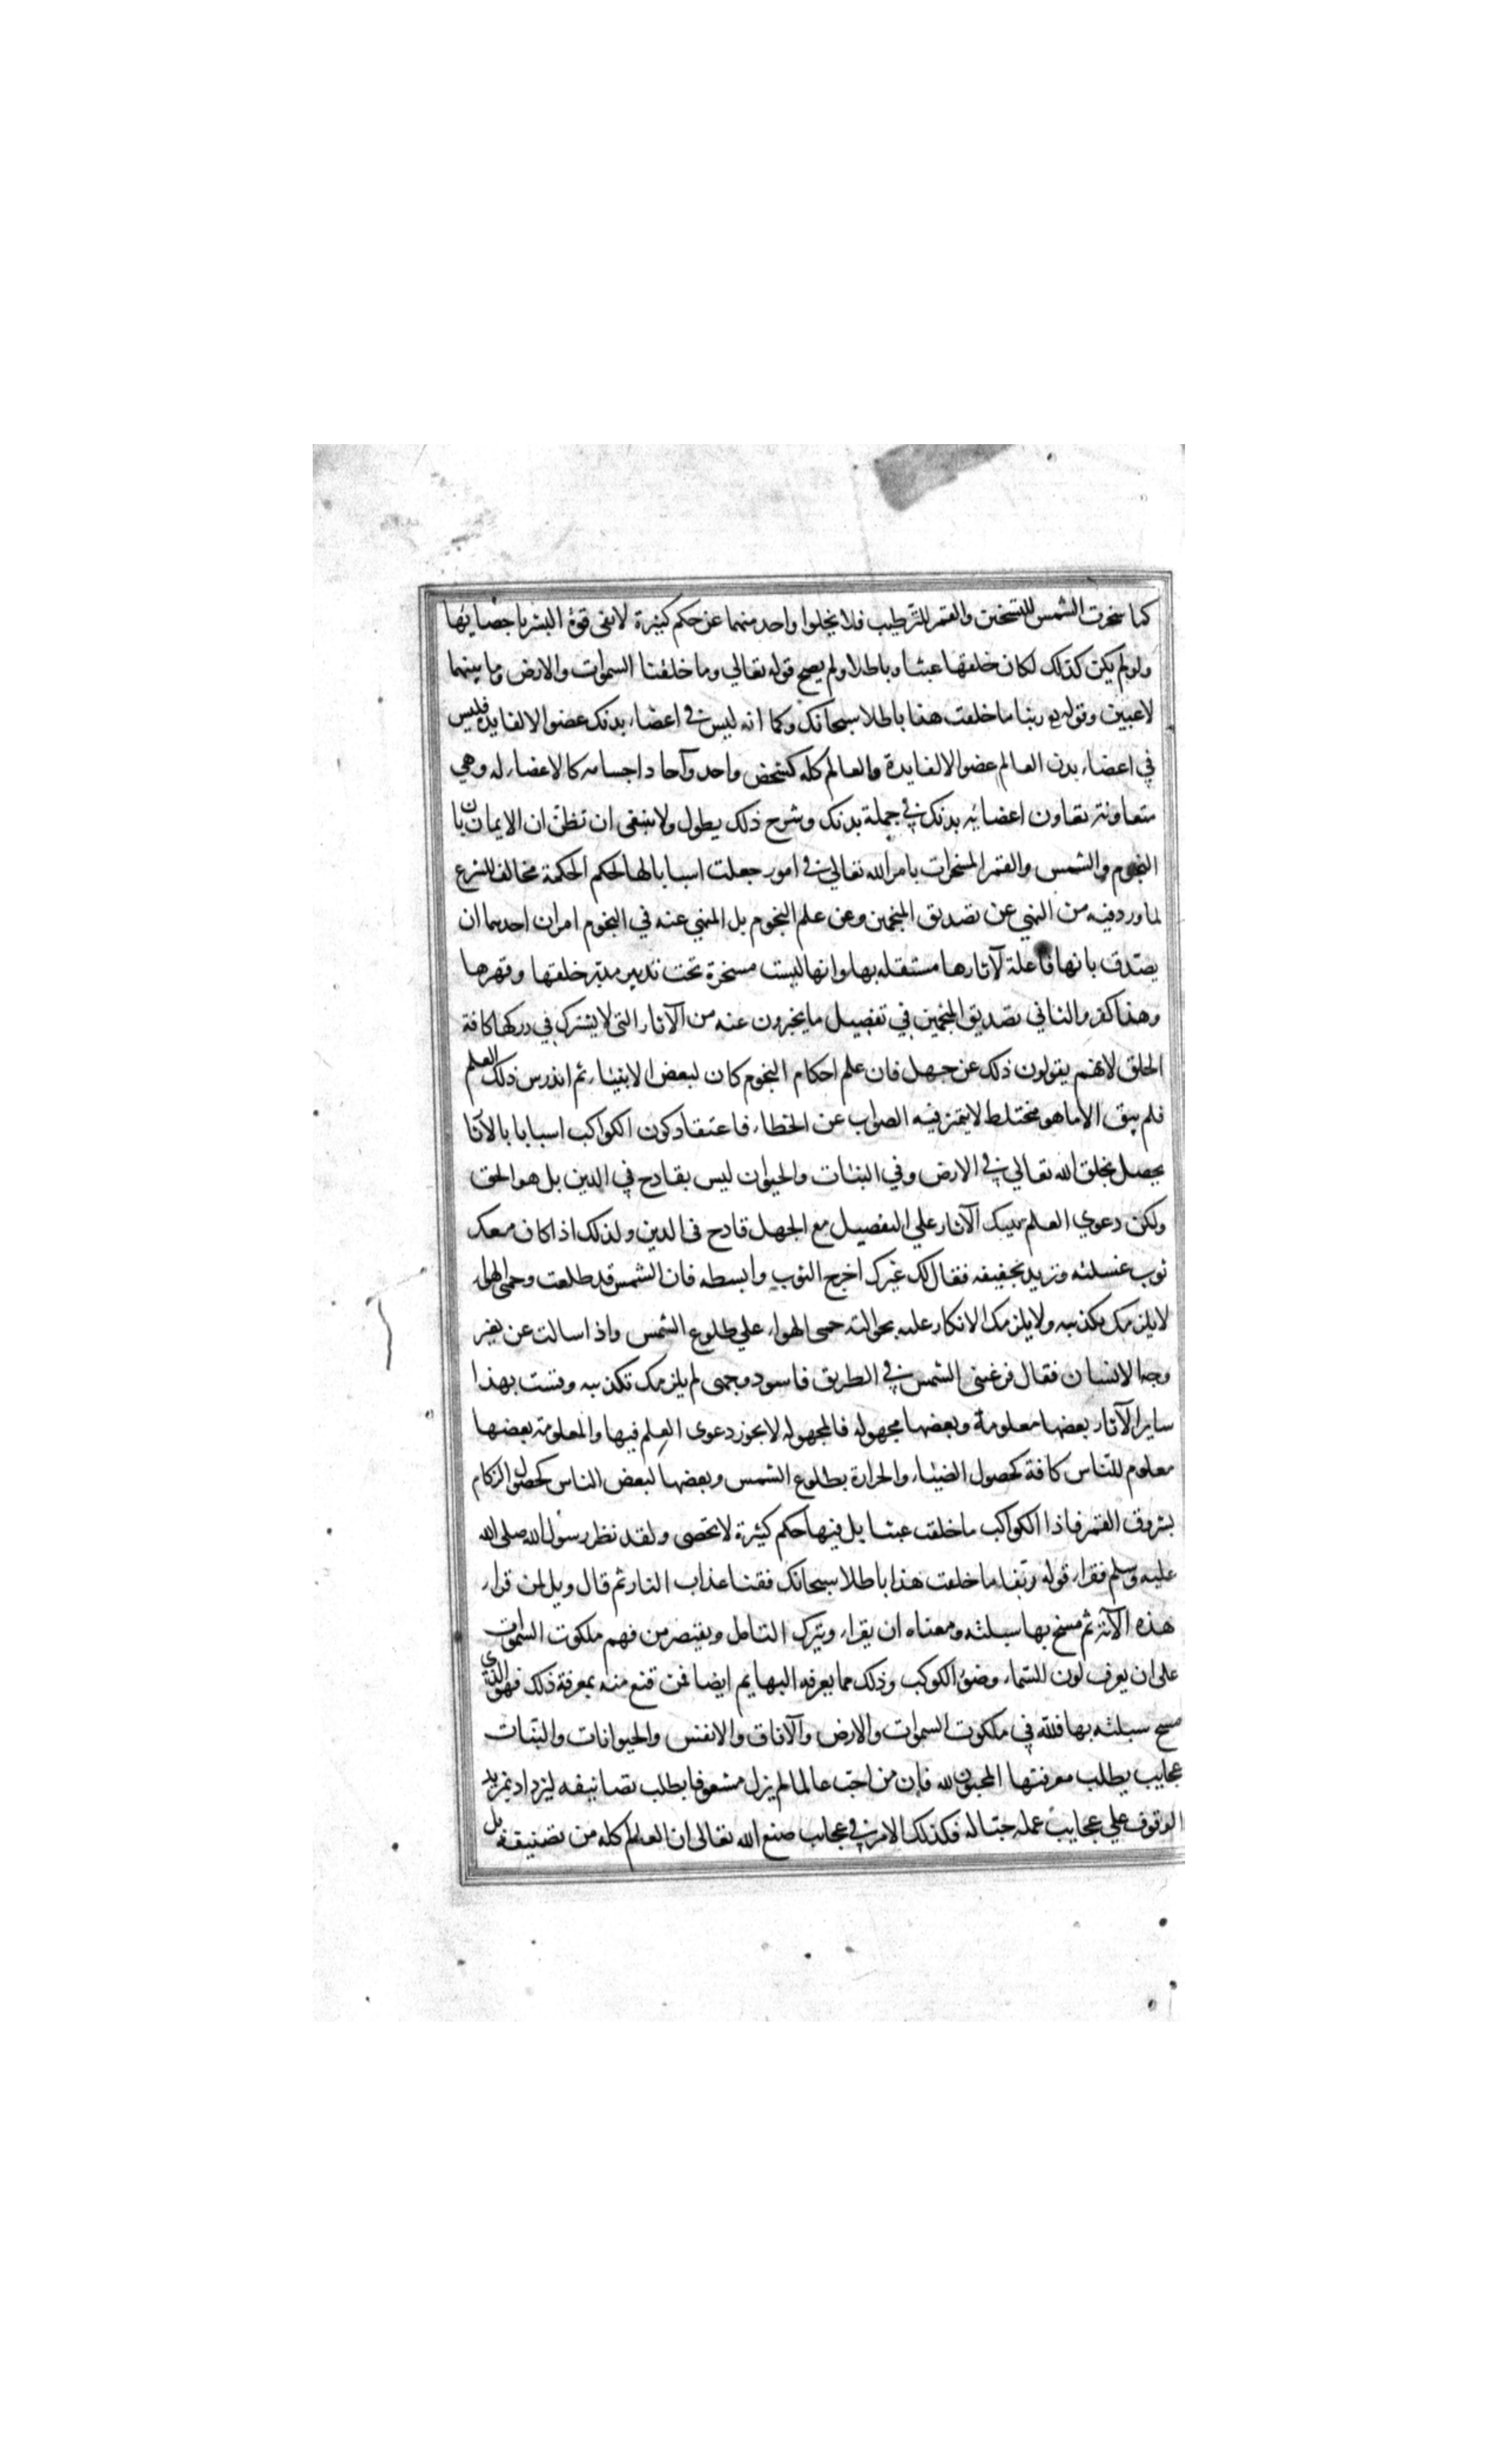 كما سخرت الشمس للتسخين والقمر للترطيب فلا يخلوا واحد منهما عن حكم كثيرة لا تفى قوة البشر باحصايها
ولو لم يكن كذلك لكان خلقها عبثا وباطلا ولم يصح قوله تعالي وما خلقنا السموات والارض وما بينهما
لاعبين وقوله ربنا ما خلقت هذا باطلا سبحانك وكما انه ليس في اعضاء بدنك عضو الا لفايدة فليس
في اعضاء بدن العالم عضو الا لفايدة والعالم كله كشخص واحد وآحاد اجسامه كالاعضاء له وهي
متعاونة تعاون اعضايه بدنك في جملة بدنك وشرح ذلك يطول ولا ينبغى ان تظن ان الايمان بان
النجوم والشمس والقمر المسخرات بامر الله تعالي في امور جعلت اسبابا لها لحكم الحكمة مخالف للشرع
لما ورد فيه من النهي عن تصديق المنجمين وعن علم النجوم بل المنهي عنه في النجوم امران احدهما ان
يصدق بانها فاعلة لآثارها مستقله بها وانها ليست مسخرة تحت تدبير مدبر خلقها وقهرها
وهذا كفر والثاني تصديق المنجمين في تفصيل ما يخبرون عنه من الآثار التى لا يشترك في دركها كافة
الخلق لانهم يقولون ذلك عن جهل فان علم احكام النجوم كان لبعض الانبياء ثم اندرس ذلك العلم
فلم يبق الا ما هو مختلط لا يتميز فيه الصواب عن الخطاء فاعتقاد كون الكواكب اسبابا بالآثا
يحصل بخلق الله تعالي في الارض وفي النبات والحيوان ليس بقادح في الدين بل هو الحق
ولكن دعوي العلم بتيك الآثار علي التفصيل مع الجهل قادح فى الدين ولذلك اذا كان معك
ثوب غسلته وتريد تجفيفه فقال لك غيرك اخرج الثوب وابسطه فان الشمس قد طلعت وحمى الهواء
لا يلزمك تكذيبه ولا يلزمك الانكار عليه بحوالته حمى الهواء علي طلوع الشمس واذا سالت عن تغير
وجه الانسان فقال قرعنى الشمس في الطريق فاسود وجهى لم يلزمك تكذيبه وقست بهذا
ساير الآثار بعضها معلومة وبعضها مجهوله فالمجهوله لا يجوز دعوى العلم فيها والمعلومة بعضها
معلوم للناس كافة كحصول الضياء والحرارة بطلوع الشمس وبعضها لبعض الناس كحصول الزكام
بشروق القمر فاذا الكواكب ما خلقت عبثا بل فيها حكم كثيرة لا تحصى ولقد نظر رسول الله صلى الله
عليه وسلم فقراء قوله ربنا ما خلقت هذا باطلا سبحانك فقنا عذاب النار ثم قال ويل لمن قراء
هذه الآية ثم مسح بها سبلته ومعناه ان يقراء ويترك التامل ويقتصر من فهم ملكوت السموات
على ان يعرف لون السماء وضوء الكوكب وذلك مما يعرفه البهايم ايضا فمن قنع منه بمعرفة ذلك فهو الذي
مسح سبلته بها فلله في ملكوت السموات والارض والآفاق والانفس والحيوانات والنبات
عجايب يطلب معرفتها المحبون لله فان من احب عالما لم يزل مشعوفا بطلب تصانيفه ليزداد بمزيد
الوقوف علي عجايب عمله حبا له فكذلك الامر في عجايب صنع الله تعالى ان العالم كله من تصنيفه بل